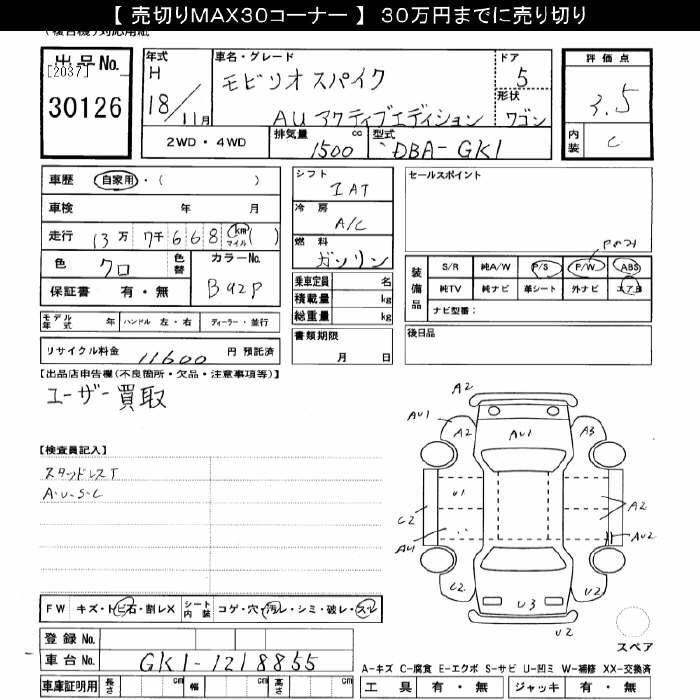 【 売切りMAX30コーナー 】 30万円までに売り切り
出品No. [2037] 30126
年式 H 18/11月
車名・グレード モビリオスパイク AU アクティブエディション
ドア 5
形状 ワゴン
評価点 3.5
内装 C
2WD・4WD 排気量 1500 cc 型式 DBA-GK1
車歴 自家用・( )
車検 年 月
走行 13万 7千 6 6 8 km マイル ( )
色 クロ 色替 カラーNo. B92P
保証書 有・無
モデル年式 年 ハンドル 左・右 ディーラー・並行
リサイクル料金 11600 円 預託済
シフト IAT
冷房 A/C
燃料 ガソリン
乗車定員 名
積載量 kg
総重量 kg
書類期限 月 日
セールスポイント
Pのみ
装備品 S/R 純A/W P/S P/W ABS
純TV 純ナビ 革シート 外ナビ エアB
ナビ型番:
後日品
【出品店申告欄(不良箇所・欠品・注意事項等)】
ユーザー買取
【検査員記入】
スタッドレスT
A・U・S・C
A2
AU1 A2 AU1 A3
U1 A2
C2
AU1 AU2
C2 U3 U2
U2
スペア
FW キズ・トビ石・割レX シート内装 コゲ・穴・汚レ・シミ・破レ・スレ
登録No.
車台No. GK1-1218855
車庫証明用 長さ cm 幅 cm 高さ cm
A-キズ C-腐食 E-エクボ S-サビ U-凹ミ W-補修 XX-交換済
工具 有・無 ジャッキ 有・無